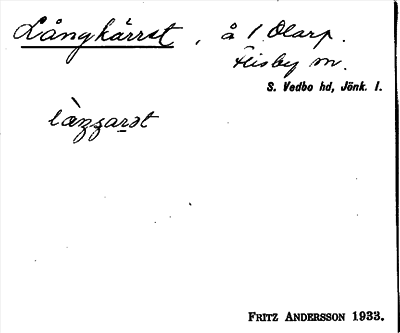 Långkärret, å 1 Olarp.
Flisby sn.
S. Vedbo hd, Jönk. l.
FRITZ ANDERSSON 1933.